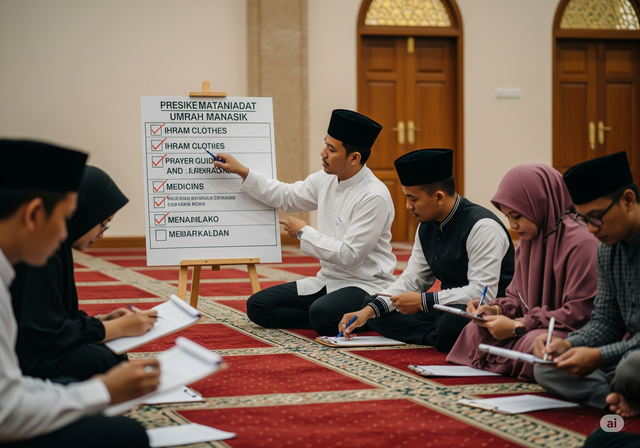 PRESIKE MATANIADAT
UMRAH MANASIK
IHRAM CLOTHES
IHRAM CLOTHES
PRAYER GUID
AND
MEDICINS
MENANLAKO
MEMBARKALDAN
ai